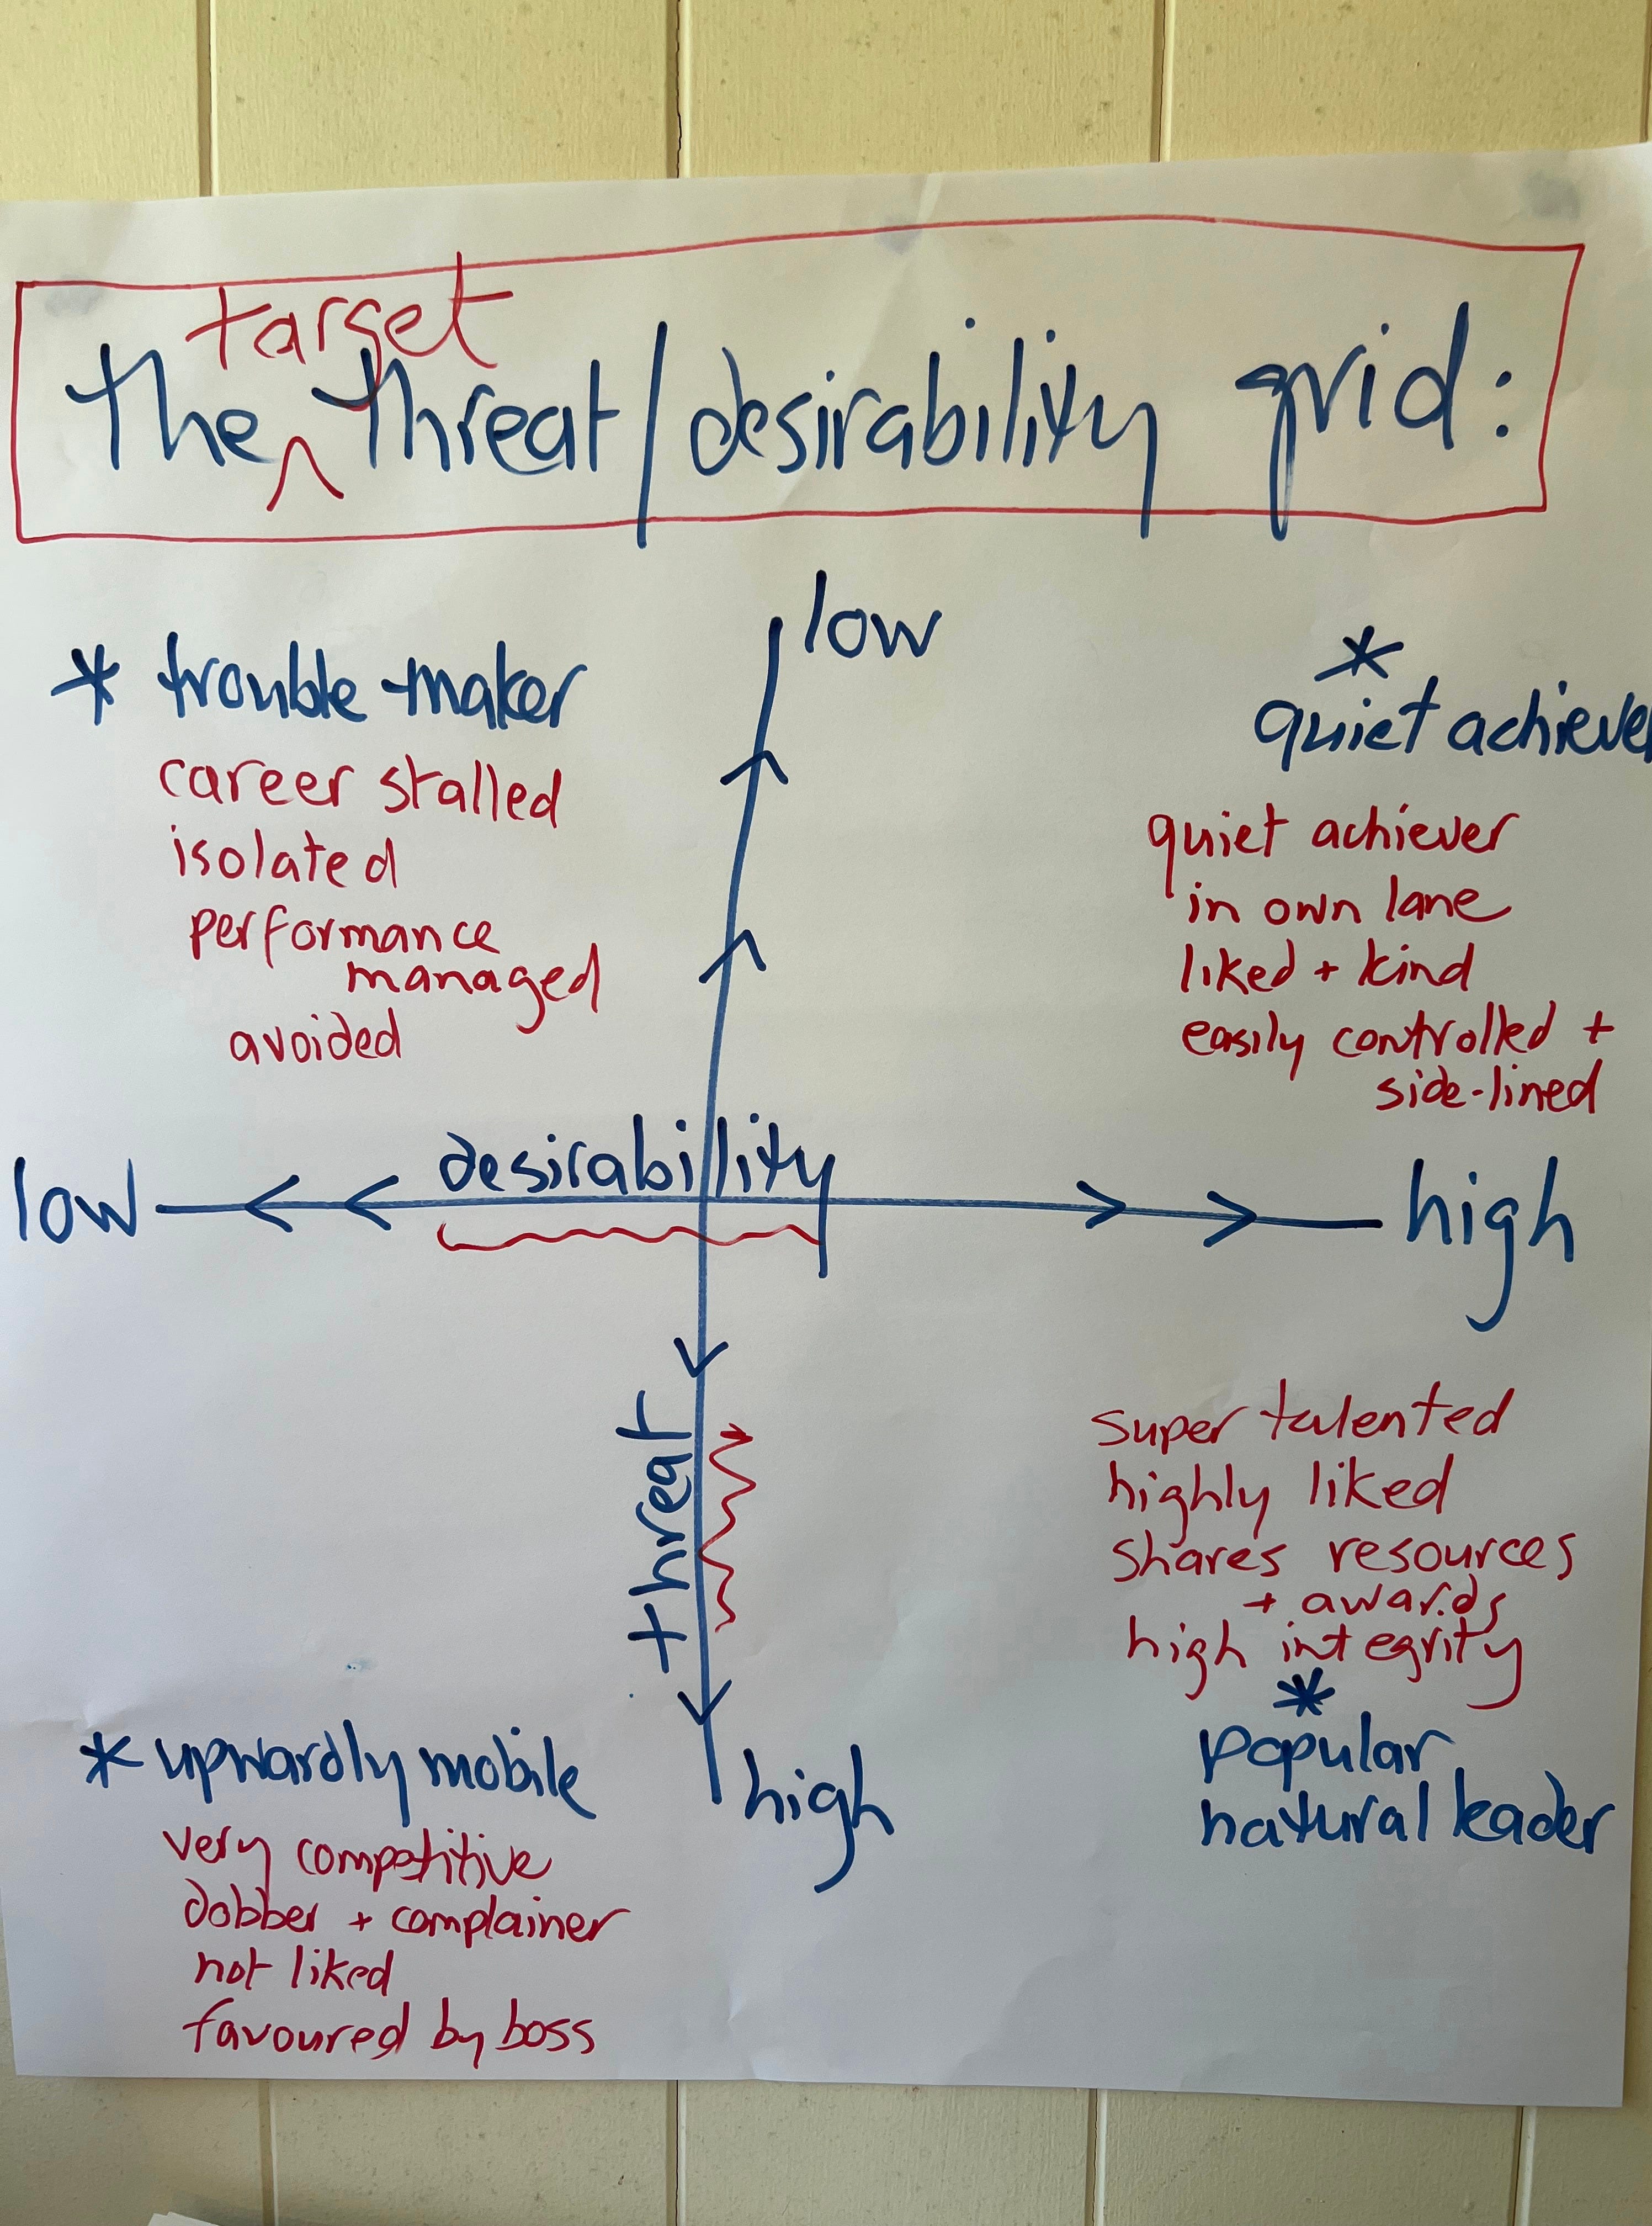 target
the threat/desirability grid:
low
* trouble-maker
career stalled
isolated
performance
managed
avoided
*
quiet achiever
quiet achiever
in own lane
liked + kind
easily controlled +
side-lined
desirability
low
high
threat
super talented
highly liked
shares resources
+ awards
high integrity
*
popular
natural leader
* upwardly mobile
very competitive
dobber + complainer
not liked
favoured by boss
high